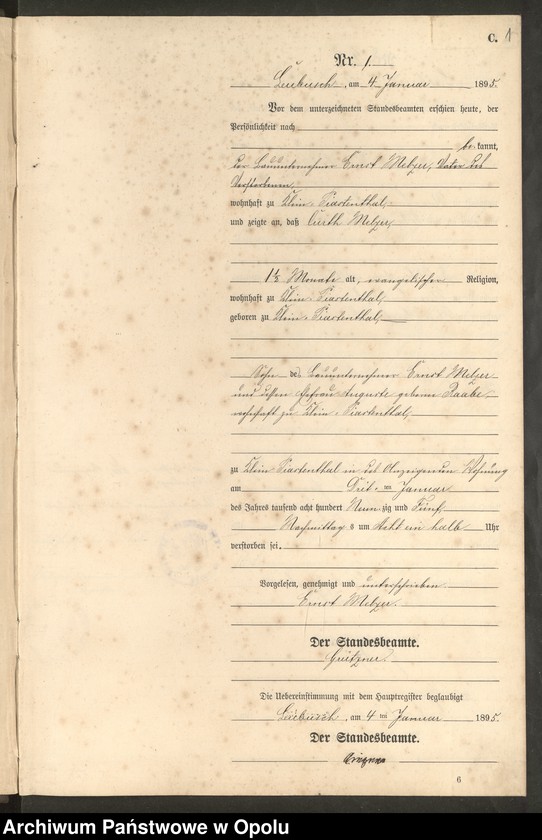 C. 1
Nr. 1.
Leubusch, am 4 Januar 1895.
Vor dem unterzeichneten Standesbeamten erschien heute, der
Persönlichkeit nach
be kannt,
der Bauunternehmer Ernst Melzer, Vater des
Verstorbenen,
wohnhaft zu Klein-Piastenthal,
und zeigte an, daß Curth Melzer,
1½ Monate alt, evangelischer Religion,
wohnhaft zu Klein-Piastenthal,
geboren zu Klein-Piastenthal,
Sohn des Bauunternehmer Ernst Melzer
und dessen Ehefrau Auguste geborne Raabe,
wohnhaft zu Klein-Piastenthal,
zu Klein Piastenthal in des Anzeigenden Wohnung
am Januar
des Jahres tausend acht hundert Neunzig und Fünf
Nachmittags um Acht ein halb Uhr
verstorben sei.
Vorgelesen, genehmigt und unterschrieben
Ernst Melzer.
Der Standesbeamte.
Die Uebereinstimmung mit dem Hauptregister beglaubigt
Leubusch, am 4 ten Januar 1895.
Der Standesbeamte.
6
Archiwum Państwowe w Opolu